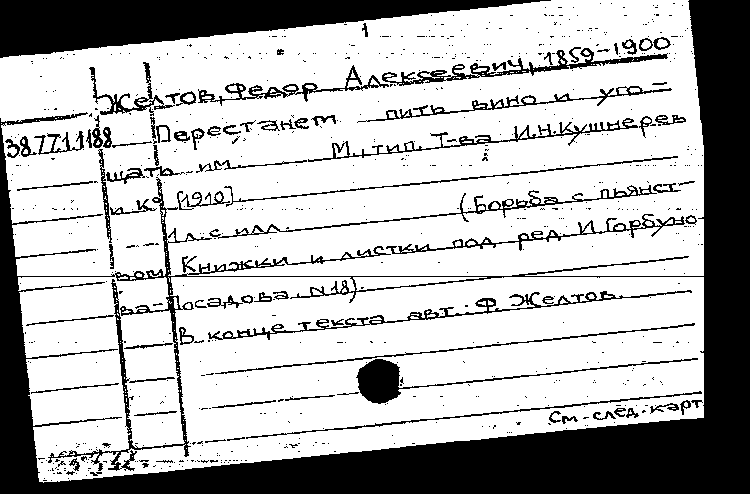 1
Желтов, Федор Алексеевич, 1859-1900
38.771.1188 Перестанем пить вино и уго-
щать им. М., тип. Т-ва И.Н.Кушнерев
и К° [1910].
1 л. с илл. (Борьба с пьянст-
вом Книжки и листки под ред. И.Горбуно-
ва-Посадова. N 18).
В конце текста авт.: Ф. Желтов.
См. след. карт